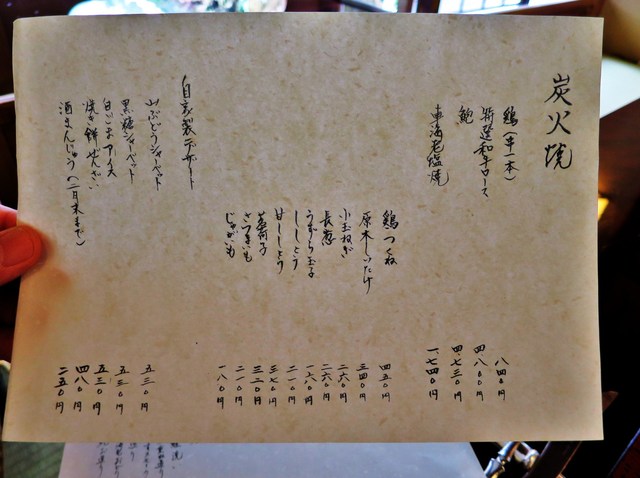 炭火焼
鶏(串一本) 八四〇円
特選和牛ロース 四、八〇〇円
鮑 四、七三〇円
車海老塩焼 一、七四〇円
鶏つくね 四五〇円
原木しいたけ 三四〇円
小玉ねぎ 二六〇円
長葱 二六〇円
うずら玉子 一六〇円
ししとう 二一〇円
甘ししとう 三七〇円
茗荷子 三二〇円
さつまいも 二一〇円
じゃがいも 一八〇円
自家製デザート
山ぶどうシャーベット 五三〇円
黒糖シャーベット 五三〇円
白ごまアイス 五三〇円
焼き餅ぜんざい 四八〇円
酒まんじゅう(二月末まで) 二五〇円